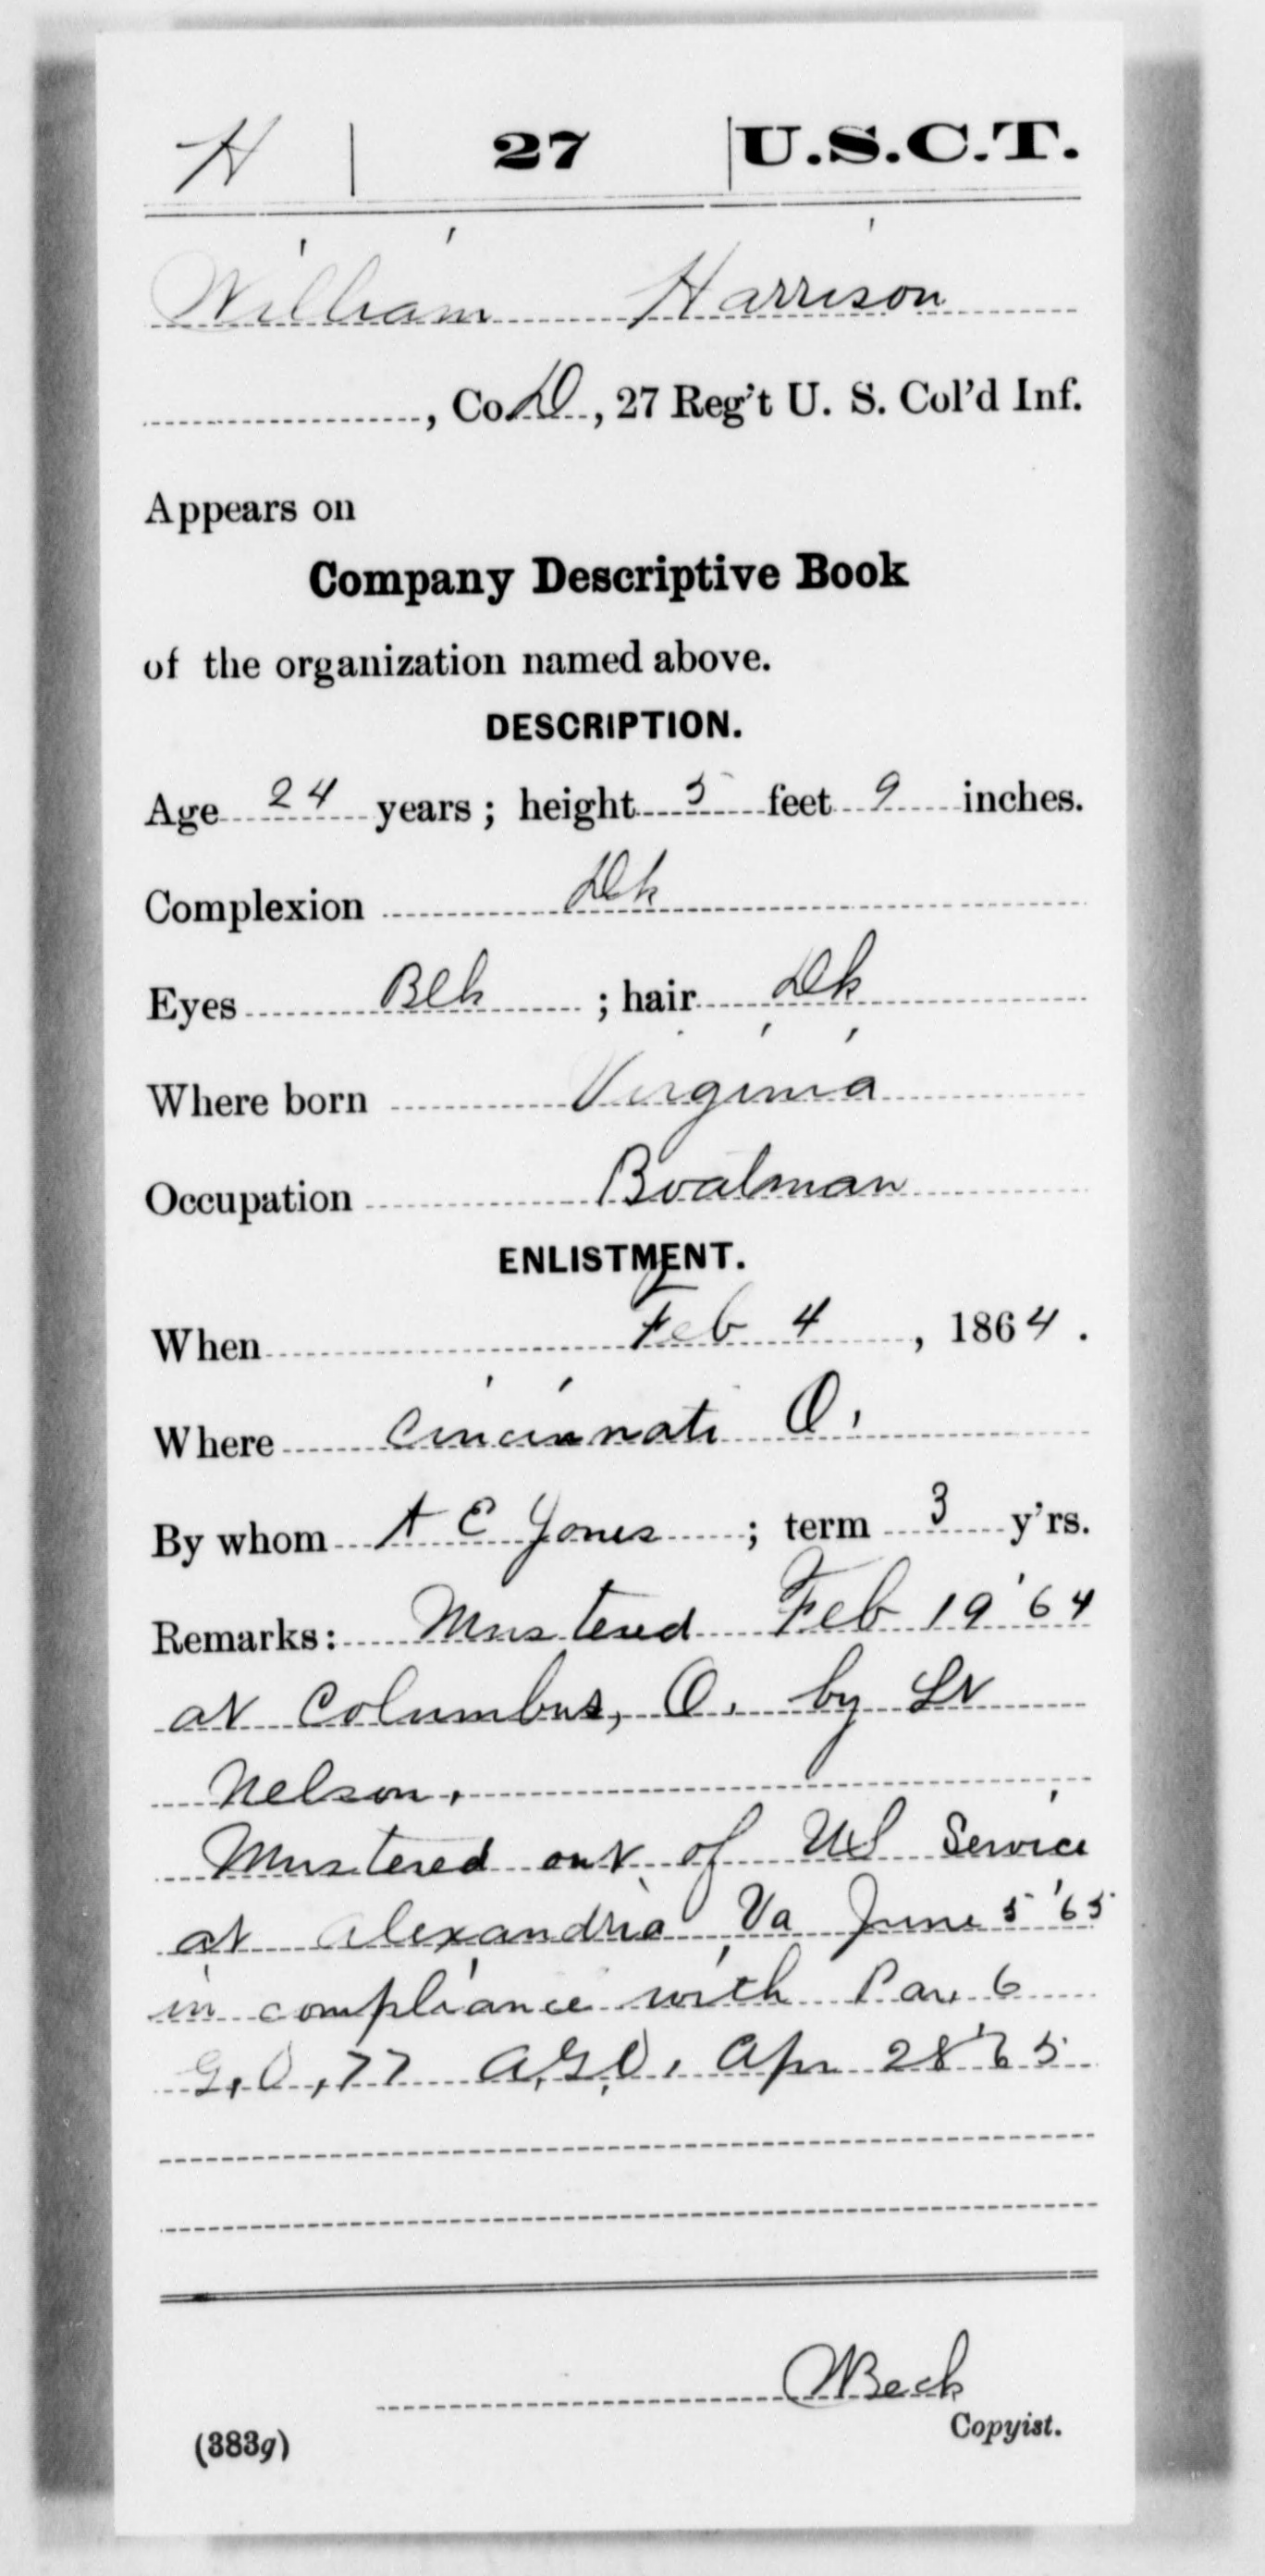 H | 27 | U.S.C.T.
William Harrison
, Co. D, 27 Reg't U. S. Col'd Inf.
Appears on
Company Descriptive Book
of the organization named above.
DESCRIPTION.
Age 24 years; height 5 feet 9 inches.
Complexion Dk
Eyes Blk ; hair Dk
Where born Virginia
Occupation Boatman
ENLISTMENT.
When Feb 4, 1864.
Where Cincinnati O.
By whom A C Jones ; term 3 y'rs.
Remarks: Mustered Feb 19 '64
at Columbus, O. by Lt
Nelson.
Mustered out of US Service
at Alexandria, Va June 5 '65
in compliance with Par. 6
G.O. 77 A.G.O. Apr 28 '65
Beck
Copyist.
(383g)